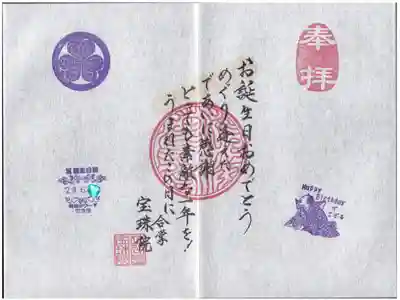 奉拝
お誕生日おめでとう
めぐり逢えた
であいに感謝
とても素敵な一年を!
うまれたこの日に
合掌
宝珠院
Happy
Birthday
でござる